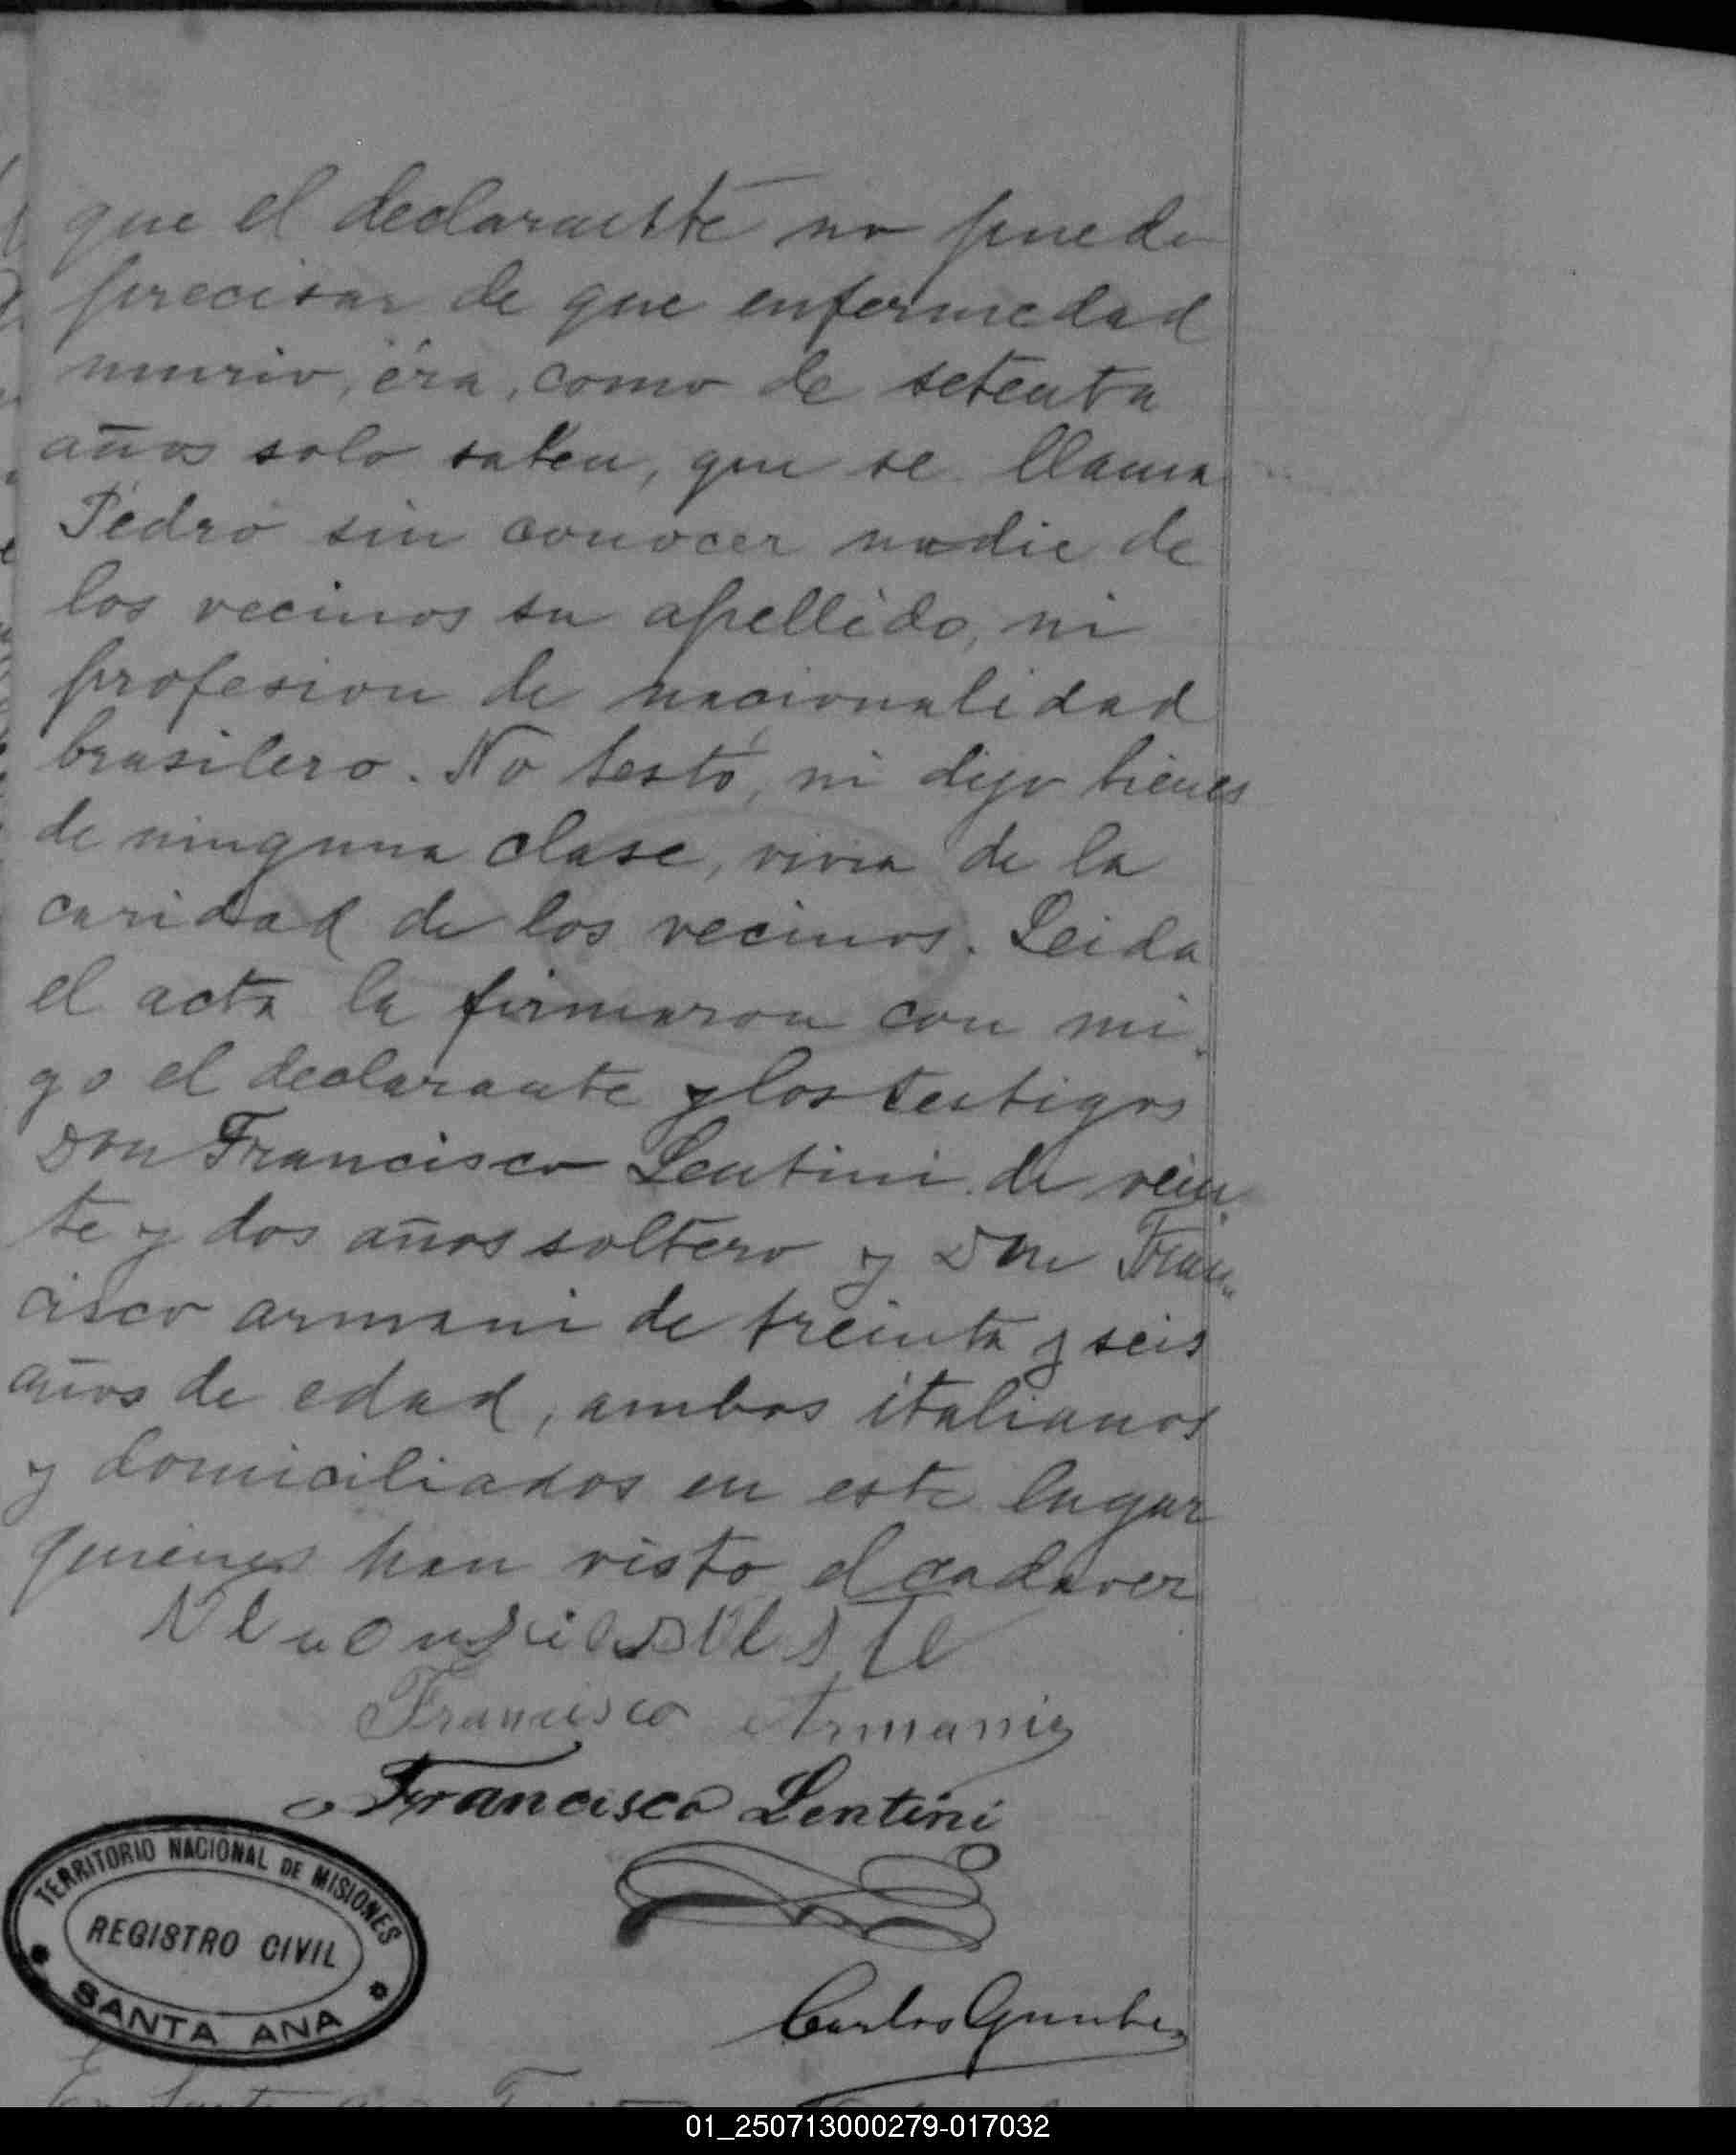 que el declarante no puede
precisar de que enfermedad
murio, éra, como de setenta
años solo saben, que se llama
Pedro sin conocer nadie de
los vecinos su apellido, ni
profesion de nacionalidad
brasilero. No testó, ni dijo bienes
de ninguna clase, vivia de la
caridad de los vecinos. Leida
el acta la firmaron con mi
go el declarante y los testigos
Don Francisco Lentini de vein
te y dos años soltero y Don Fran
cisco armani de treinta y seis
años de edad, ambos italianos
y domiciliados en este lugar
quienes han visto el cadaver
Francisco Armani
Francisco Lentini
TERRITORIO NACIONAL DE MISIONES
REGISTRO CIVIL
SANTA ANA
Carlos
01_250713000279-017032